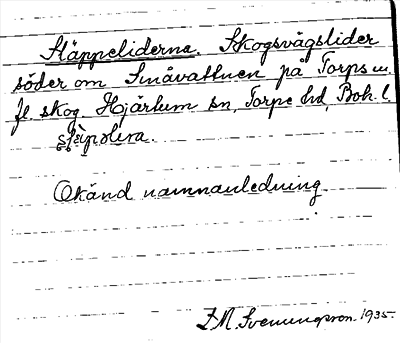 Släppeliderna. Skogsvägslider
söder om Småvattnen på Torps m.
fl. skog. Hjärtum sn, Torpe hd, Boh. l.
Okänd namnanledning.
Z.M. Svenungsson. 1935.